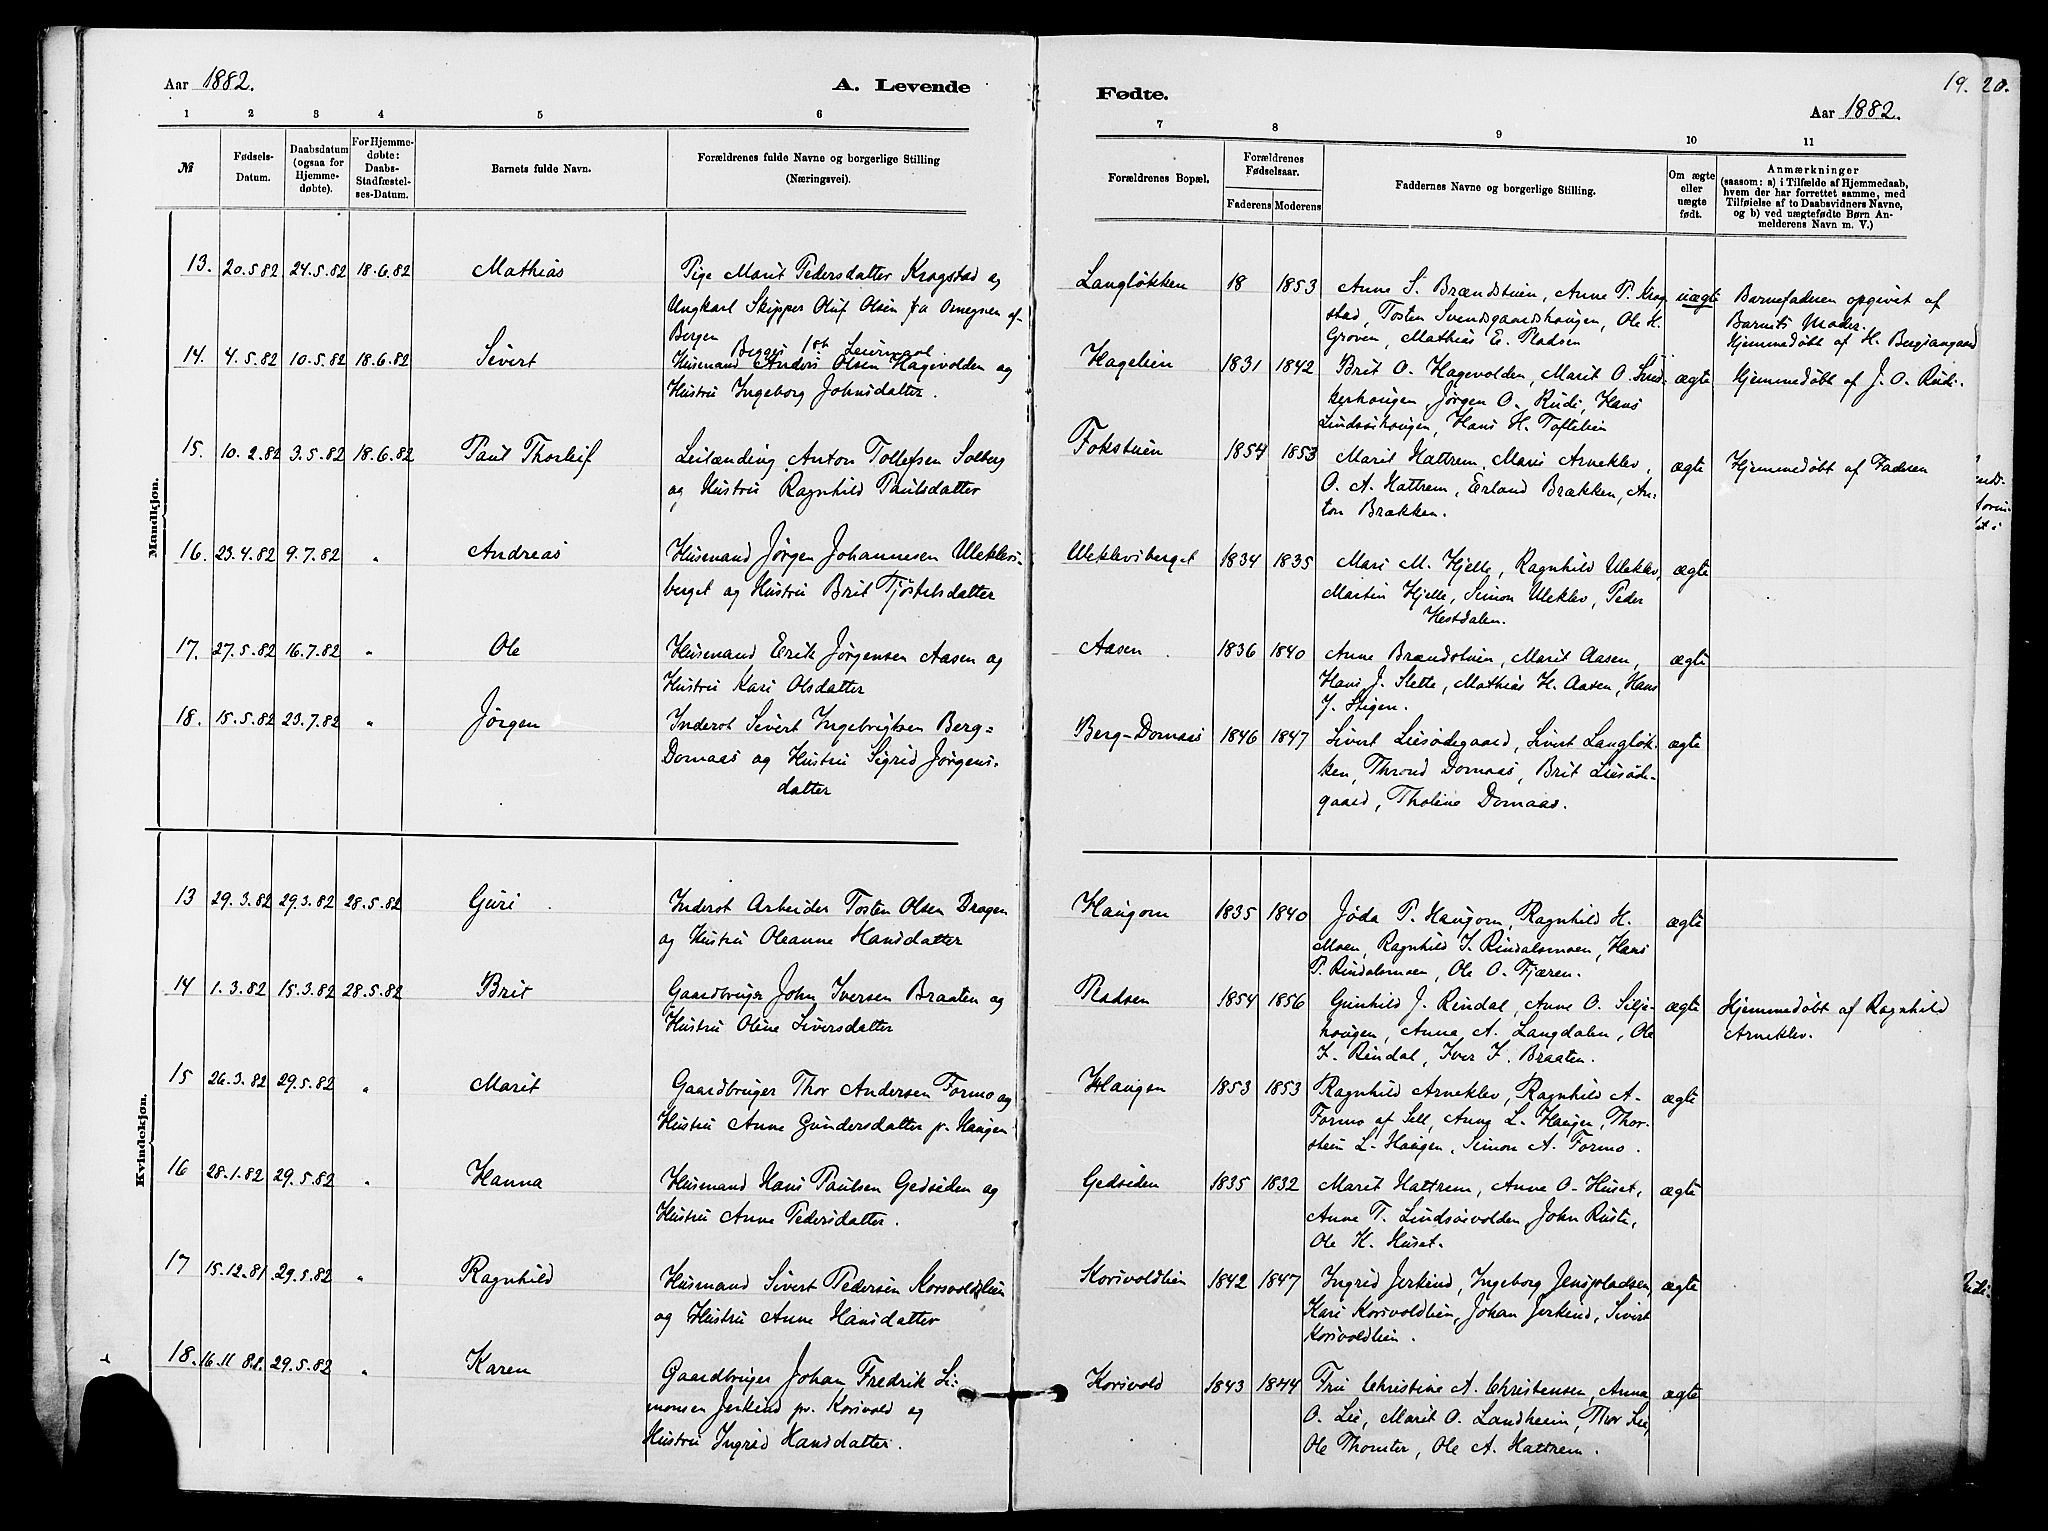 Aar 1882.
A. Levende
Fødte.
19. 20.
Aar 1882.
1 2 3 4 5 6 7 8 9 10 11
№
Fødsels-Datum.
Daabsdatum (ogsaa for Hjemmedøbte).
For Hjemmedøbte: Daabs-Stadfæstelses-Datum.
Barnets fulde Navn.
Forældrenes fulde Navne og borgerlige Stilling
(Næringsvei).
Forældrenes Bopæl.
Forældrenes Fødselsaar.
Faderens Moderens
Faddernes Navne og borgerlige Stilling.
Om ægte eller uægte født.
Anmærkninger
(saasom: a) i Tilfælde af Hjemmedaab,
hvem der har forrettet samme, med
Tilføielse af to Daabsvidners Navne,
og b) ved uægtefødte Børn An-
melderens Navn m. V.)
Mandkjøn.
13. 20.5.82 24.5.82 18.6.82 Mathias Pige Marit Pedersdatter Kragstad og Langløkken 18 1853 Anne S. Brændstuen, Anne P. Krog uægte Barnefaderen opgivet af
Ungkarl Skipper Oluf Olsen fra Omegnen af stad, Tosten Svendsgaardshaugen, Ole H. Barnets Moder.
Bergen Begges 1ste Leiermaal. Groven, Mathias E. Pladsen Hjemmedøbt af H. Bergsangaard
14. 4.5.82 10.5.82 18.6.82 Sivert Husmand Anders Olsen Hagevolden og Hagelien 1831 1842 Brit O. Hagevolden, Marit O. ægte Hjemmedøbt af J. O. Rudi.
Hustru Ingeborg Johnsdatter. kerhaugen, Jørgen O. Rudi, Hans
Lindsøihaugen, Hans H. Toftelien
15. 10.2.82 3.5.82 18.6.82 Paul Thorleif Leilænding Anton Tollefsen Solberg Fokstuen 1854 1853 Marit Hattrem, Maris Arneklev, ægte Hjemmedøbt af Faderen
og Hustru Ragnhild Paulsdatter O. A. Hattrem, Erland Brækken, An-
ton Brækken.
16. 23.4.82 9.7.82 " Andreas Husmand Jørgen Johannesen Uleklevs- Uleklevsberget 1834 1835 Mari M. Hjelle, Ragnhild Uleklev, ægte
berget og Hustru Brit Tjøstelsdatter Martin Hjelle, Simon Uleklev, Peder
Hestdalen.
17. 27.5.82 16.7.82 " Ole Husmand Erik Jørgensen Aasen og Aasen 1836 1840 Anne Brændstuen, Marit Aasen, ægte
Hustru Kari Olsdatter Hans J. Slette, Mathias H. Aasen, Hans
J. Stigen.
18. 15.5.82 23.7.82 " Jørgen Inderst Sivert Ingebrigtsen Berg- Berg-Domaas 1846 1847 Sivert Liesødegaard, Sivert Langløk- ægte
Domaas og Hustru Sigrid Jørgens- ken, Thrond Domaas, Brit Liesøde-
datter gaard, Tholine Domaas.
Kvindekjøn.
13 29.3.82 29.3.82 28.5.82 Guri Inderst Arbeider Tosten Olsen Dragen Haugom 1835 1840 Jøda P. Haugom, Ragnhild H. ægte
og Hustru Oleanne Hansdatter Moen, Ragnhild I. Rindalsmoen, Hans
P. Rindalsmoen, Ole O. Fjæren.
14 1.3.82 15.3.82 28.5.82 Brit Gaardbruger John Iversen Braaten og Pladsen 1854 1856 Gunhild J. Rindal, Anne O. Silje- ægte Hjemmedøbt af Ragnhild
Hustru Oline Siversdatter haugen, Anna A. Langdalen, Ole Arneklev.
I. Rindal, Iver I. Braaten.
15 26.3.82 29.5.82 " Marit Gaardbruger Thor Andersen Formo og Haugen 1853 1853 Ragnhild Arneklev, Ragnhild A. ægte
Hustru Anne Gundersdatter p. Haugen Formo af Sell, Anny L. Haugen, Thor-
stein L. Haugen, Simon A. Formo.
16 28.1.82 29.5.82 " Hanna Husmand Hans Paulsen Gedsiden og Gedsiden 1835 1832 Marit Hattrem, Anne O. Huset, ægte
Hustru Anne Pedersdatter. Anne T. Lindsøivolden, John Ruste,
Ole H. Huset.
17 15.12.81 29.5.82 " Ragnhild Husmand Sivert Pedersen Korsvoldlien Korsvoldlien 1842 1847 Ingrid Jerkind, Ingeborg Jenspladsen ægte
og Hustru Anne Hansdatter Kari Korsvoldlien, Johan Jerkind, Sivert
Korsvoldlien.
18. 16.11 81. 29.5.82 " Karen Gaardbruger Johan Fredrik Si- Korsvold 1843 1844 Fru Christine A. Christensen, Anna ægte
monsen Jerkind pr. Korsvold og O. Lie, Marit O. Landheim, Thor Lie,
Hustru Ingrid Hansdatter. Ole Thomter, Ole A. Hattrem.